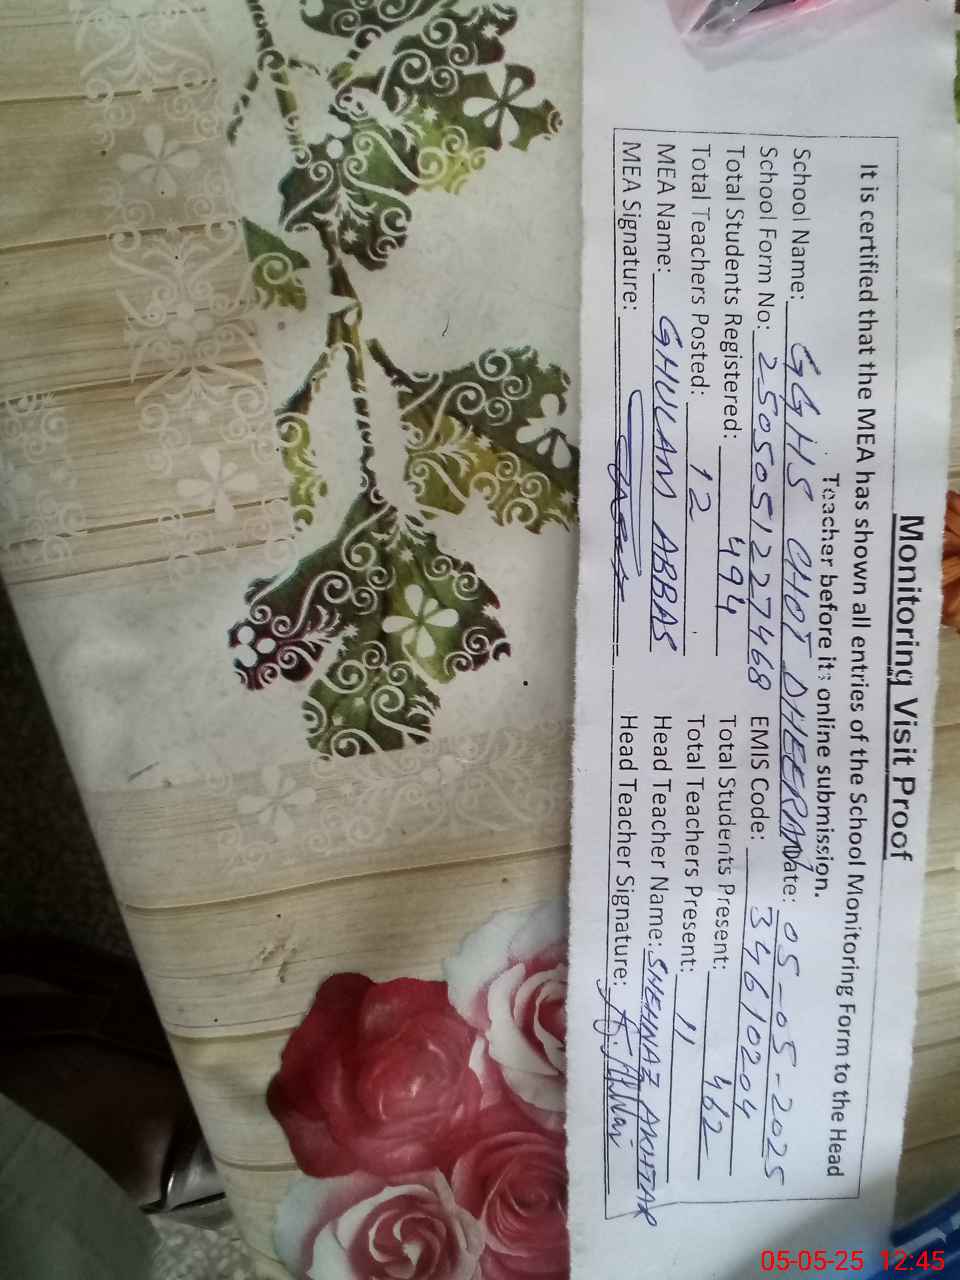 Monitoring Visit Proof
It is certified that the MEA has shown all entries of the School Monitoring Form to the Head
Teacher before its online submission.
School Name: GGHS CHOT DHEERAN Date: 05-05-2025
School Form No: 2505051227468 EMIS Code: 34610204
Total Students Registered: 494 Total Students Present: 462
Total Teachers Posted: 12 Total Teachers Present: 11
MEA Name: GHULAM ABBAS Head Teacher Name: SHEHNAZ AKHTAR
MEA Signature: Head Teacher Signature:
05-05-25 12:45